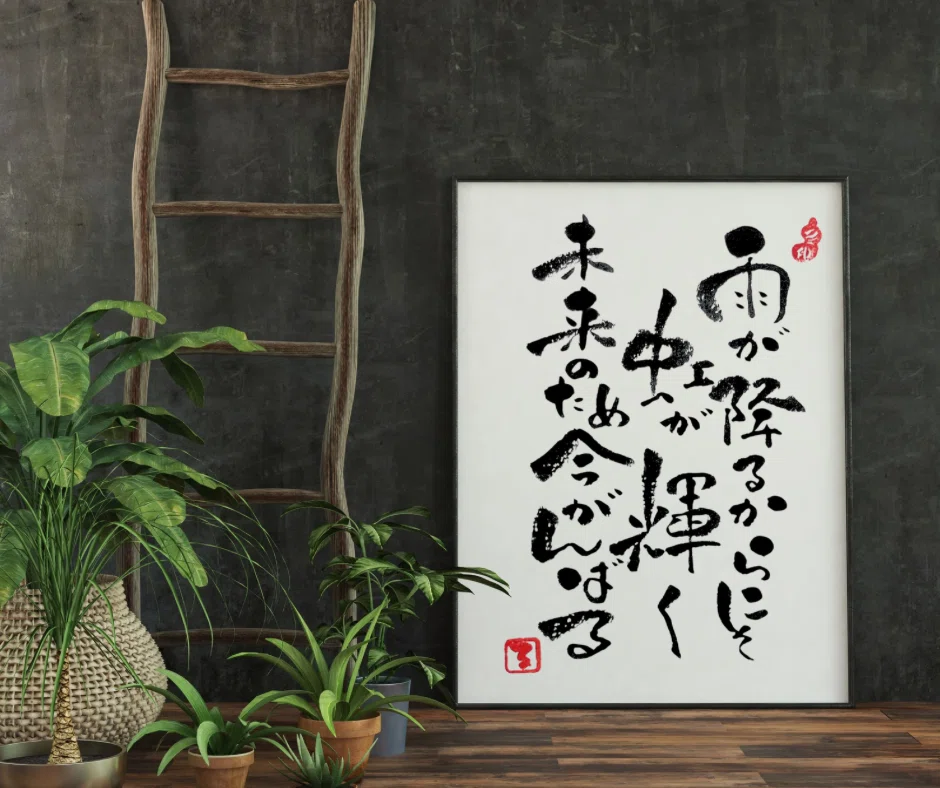 雨が降るからこそ
虹が輝く
未来のため今がんばる